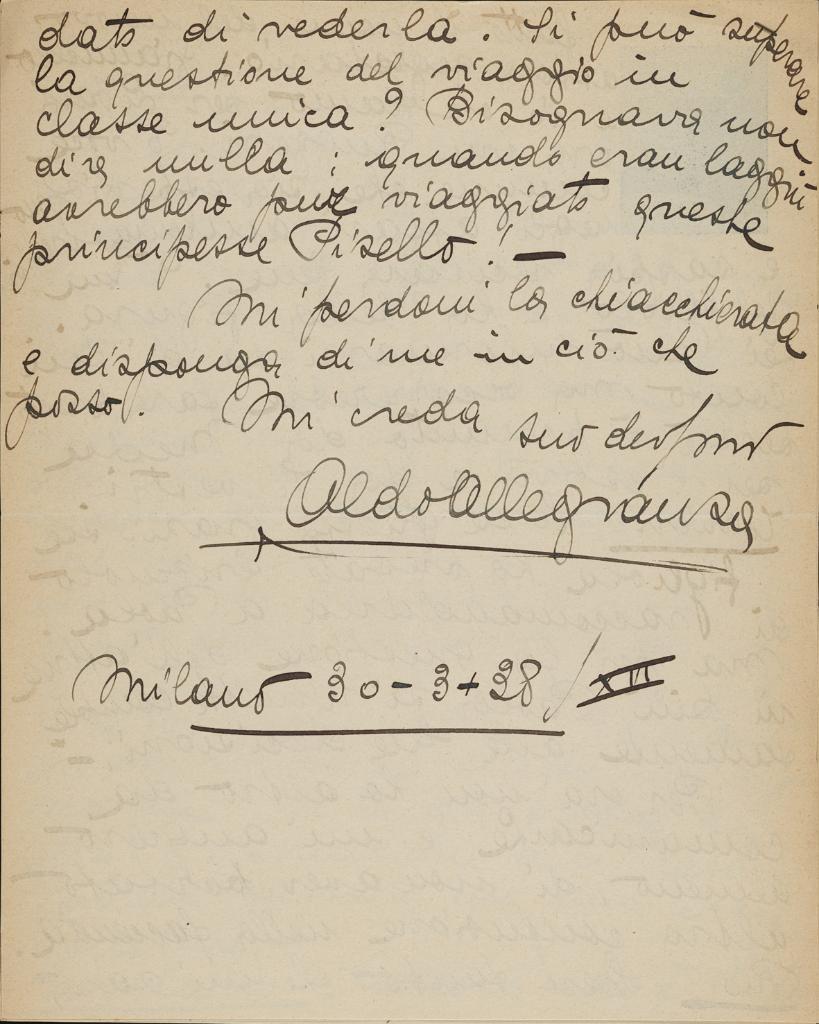 dato di vederla. Si può superare
la questione del viaggio in
classe unica? Bisognava non
dire nulla; quando eran laggiù
avrebbero pur viaggiato queste
principesse Pisello! —
Mi perdoni la chiacchierata
e disponga di me in ciò che
posso. Mi creda
suo dev/mo
Aldo Allegranza
Milano 30-3+38/XII